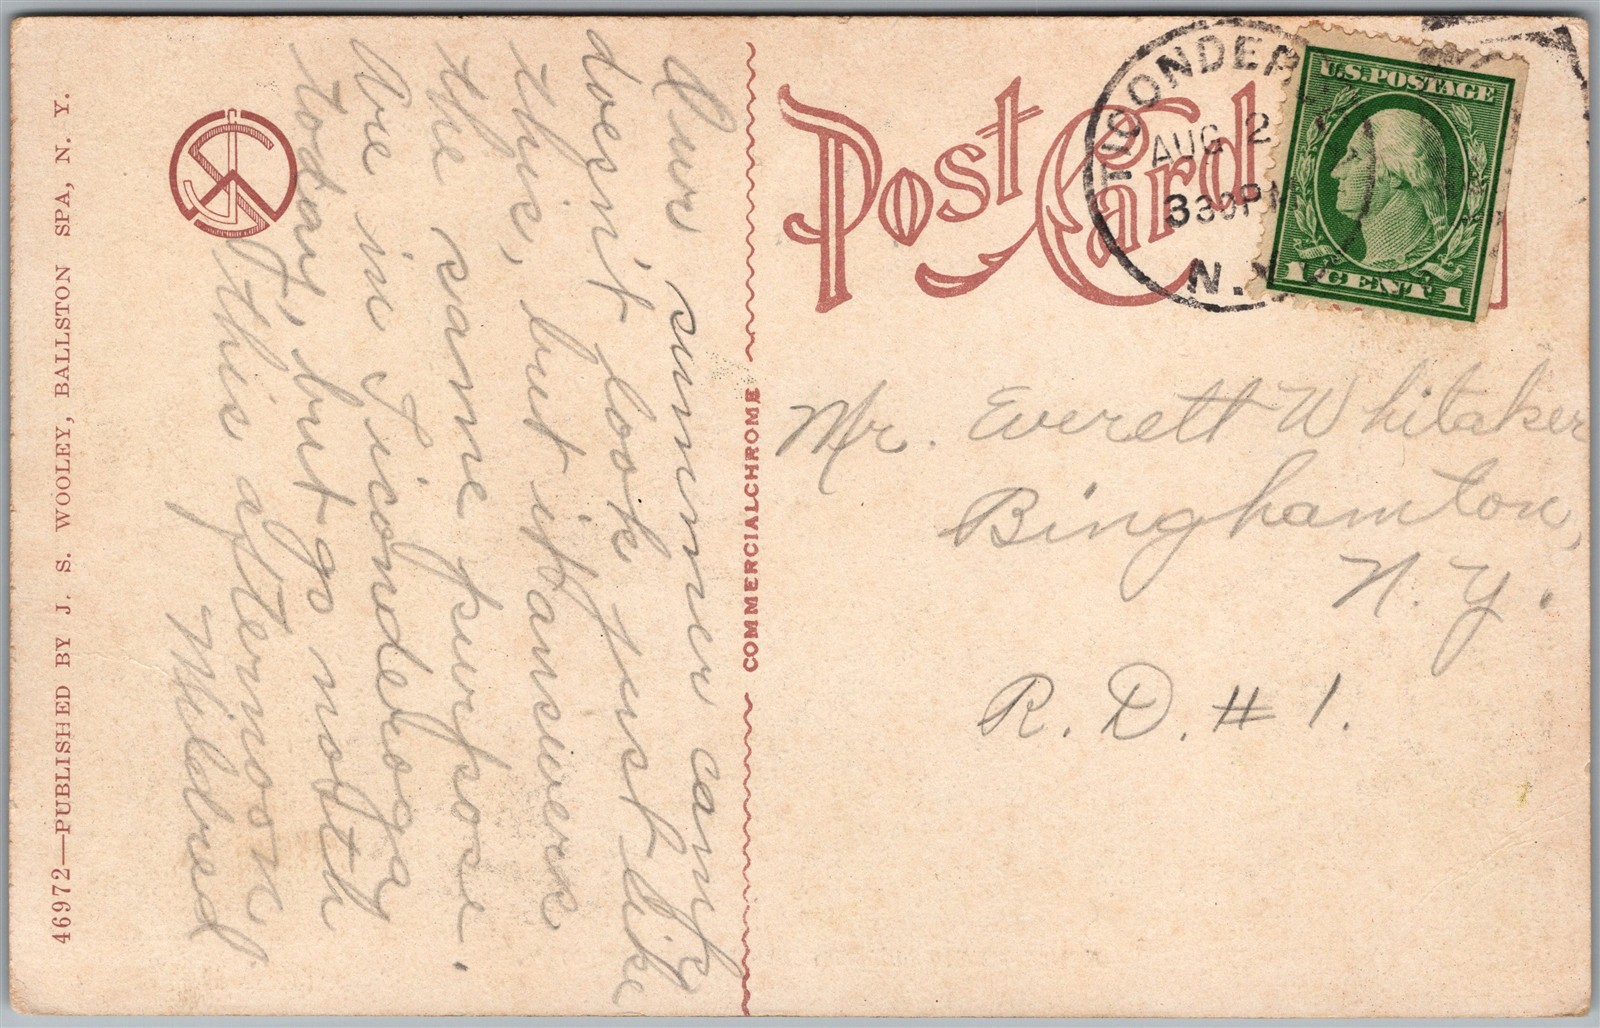 Our summer camp
doesn't look just like
this, but it answers
the same purpose.
We in Ticonderoga
today, but go north
this afternoon
Mildred
46972—PUBLISHED BY J. S. WOOLEY, BALLSTON SPA, N. Y.
COMMERCIALCHROME
Post Card
AUG 2
330PM
N.Y.
U.S. POSTAGE
1 CENT 1
Mr. Everett Whitaker
Binghamton,
N. Y.
R. D. # 1.